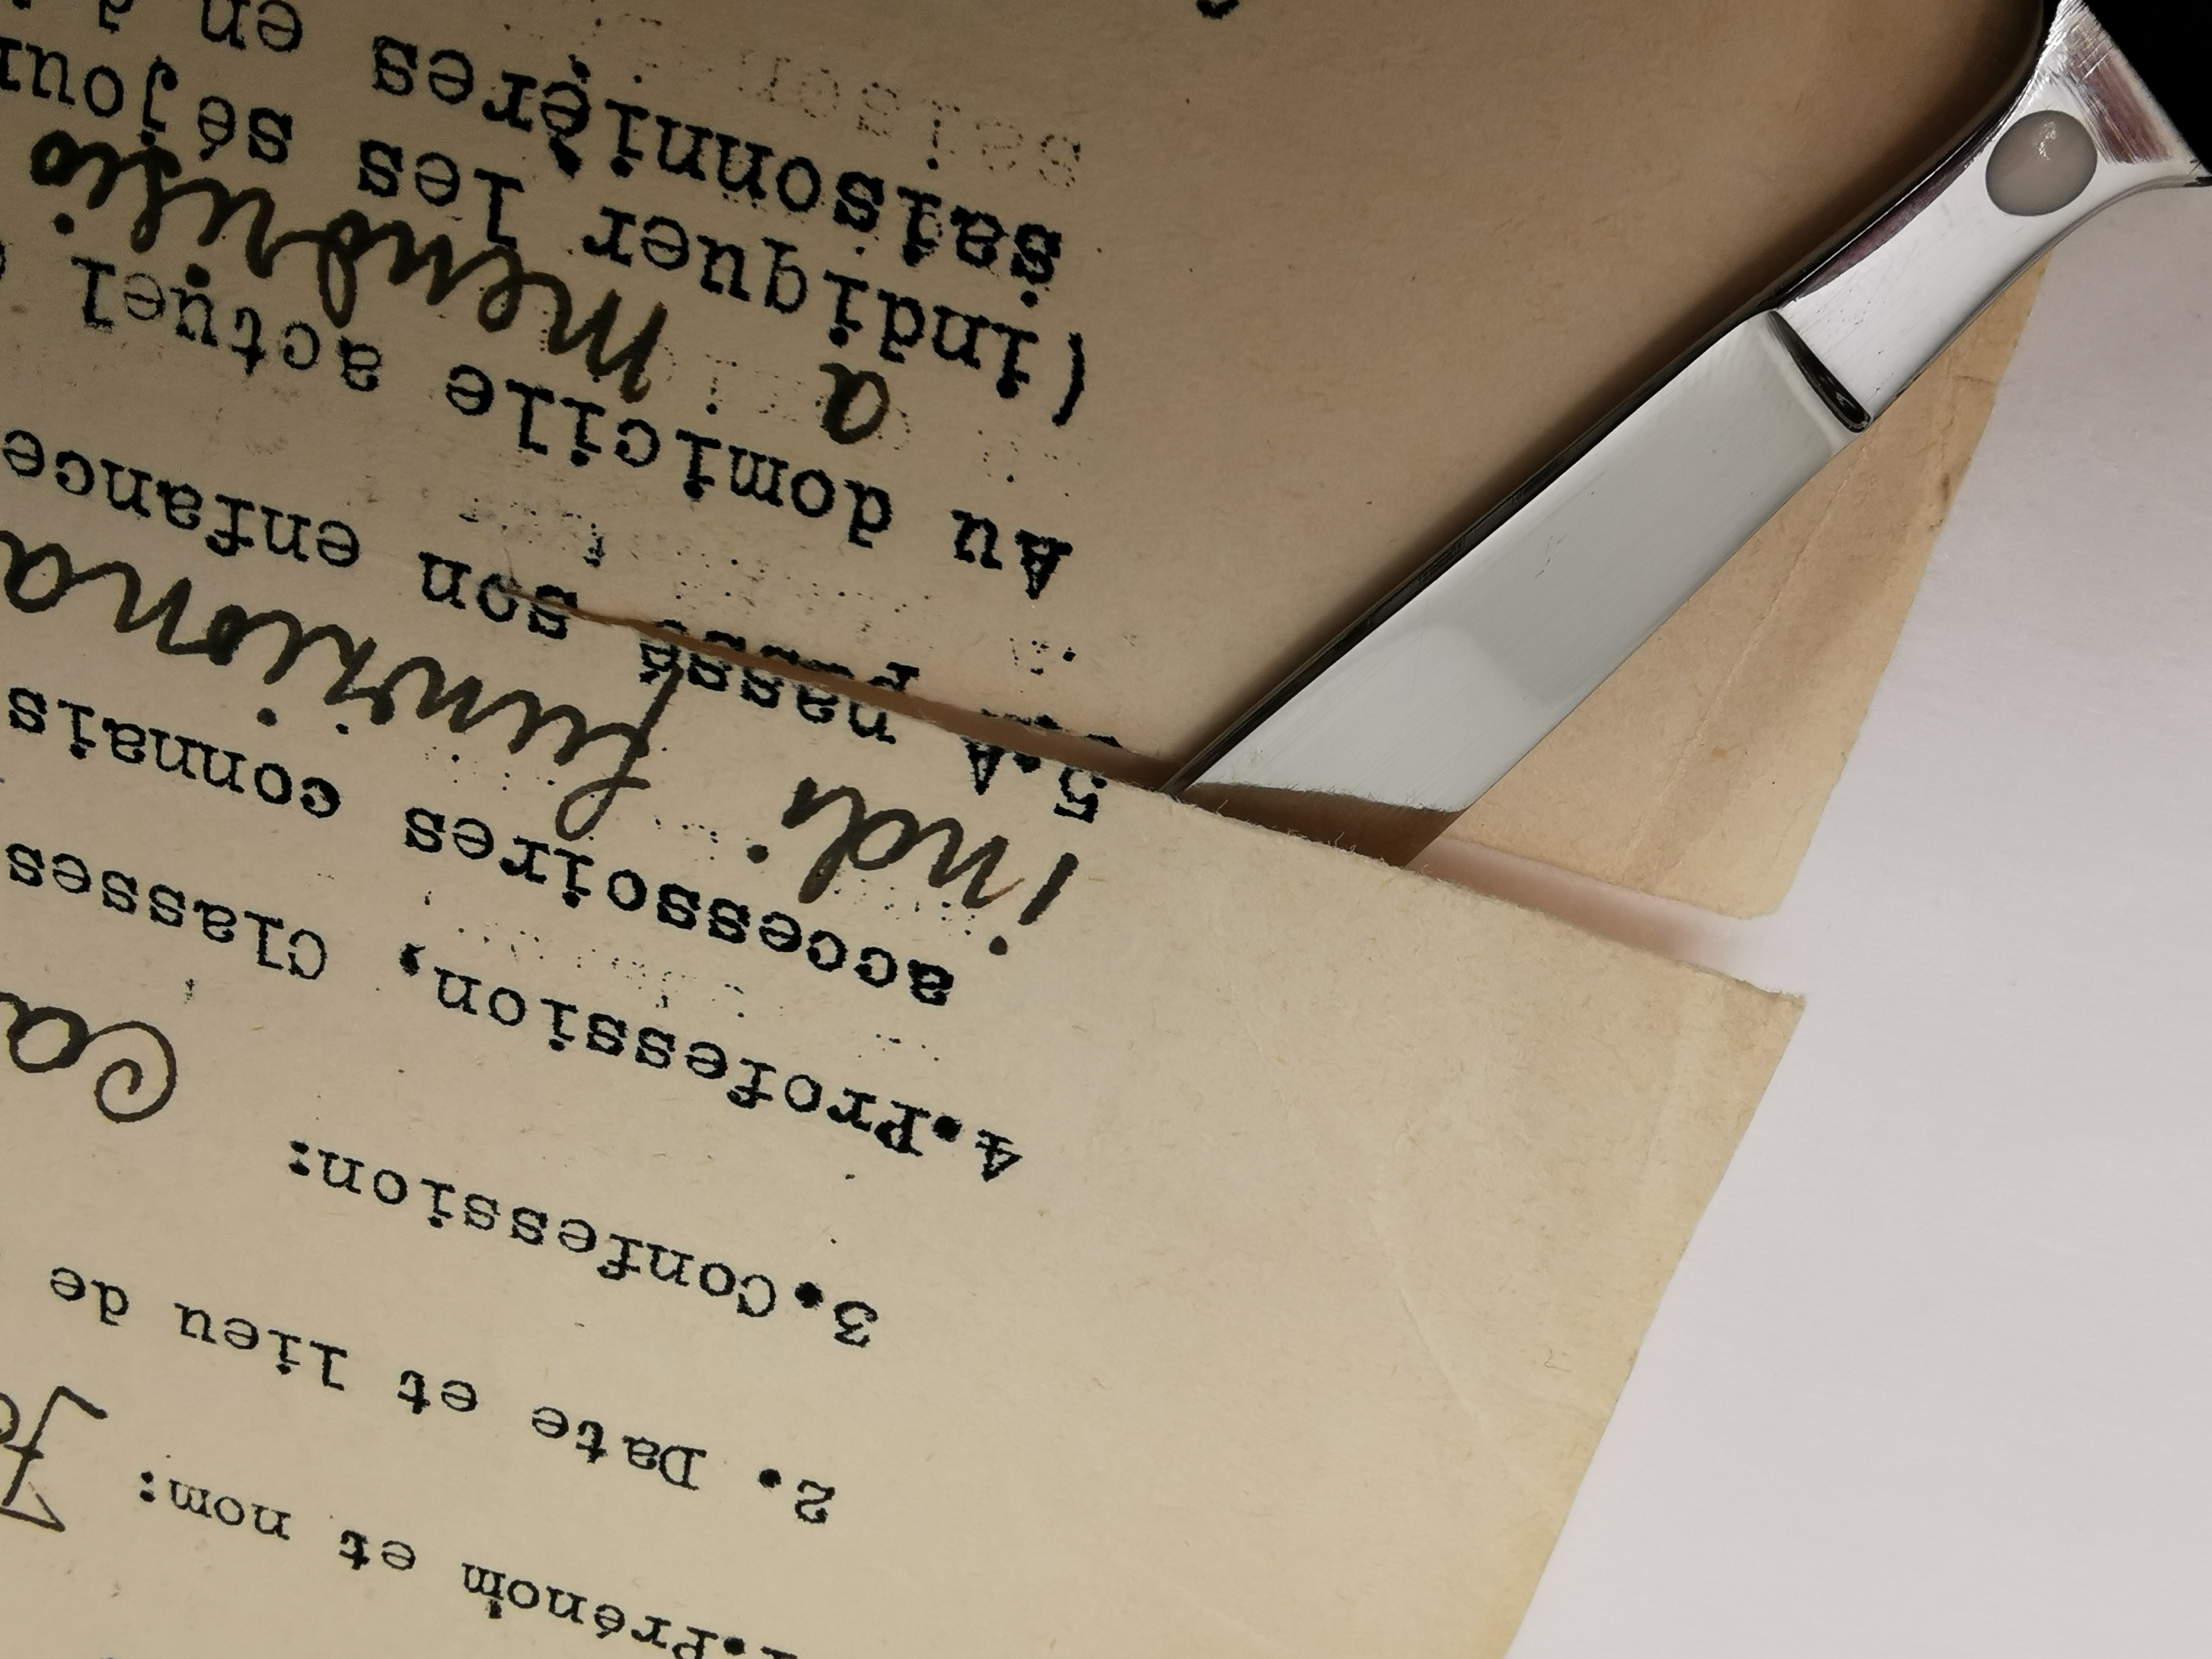 1.Prénom et nom:
2. Date et lieu de
3.Confession: Ca
4.Profession, Classes
accessoires connais
indi funziona
5.A passé son enfance
Au domicile actuel
a Mendrisio
(indiquer les séjour
saisonnières en